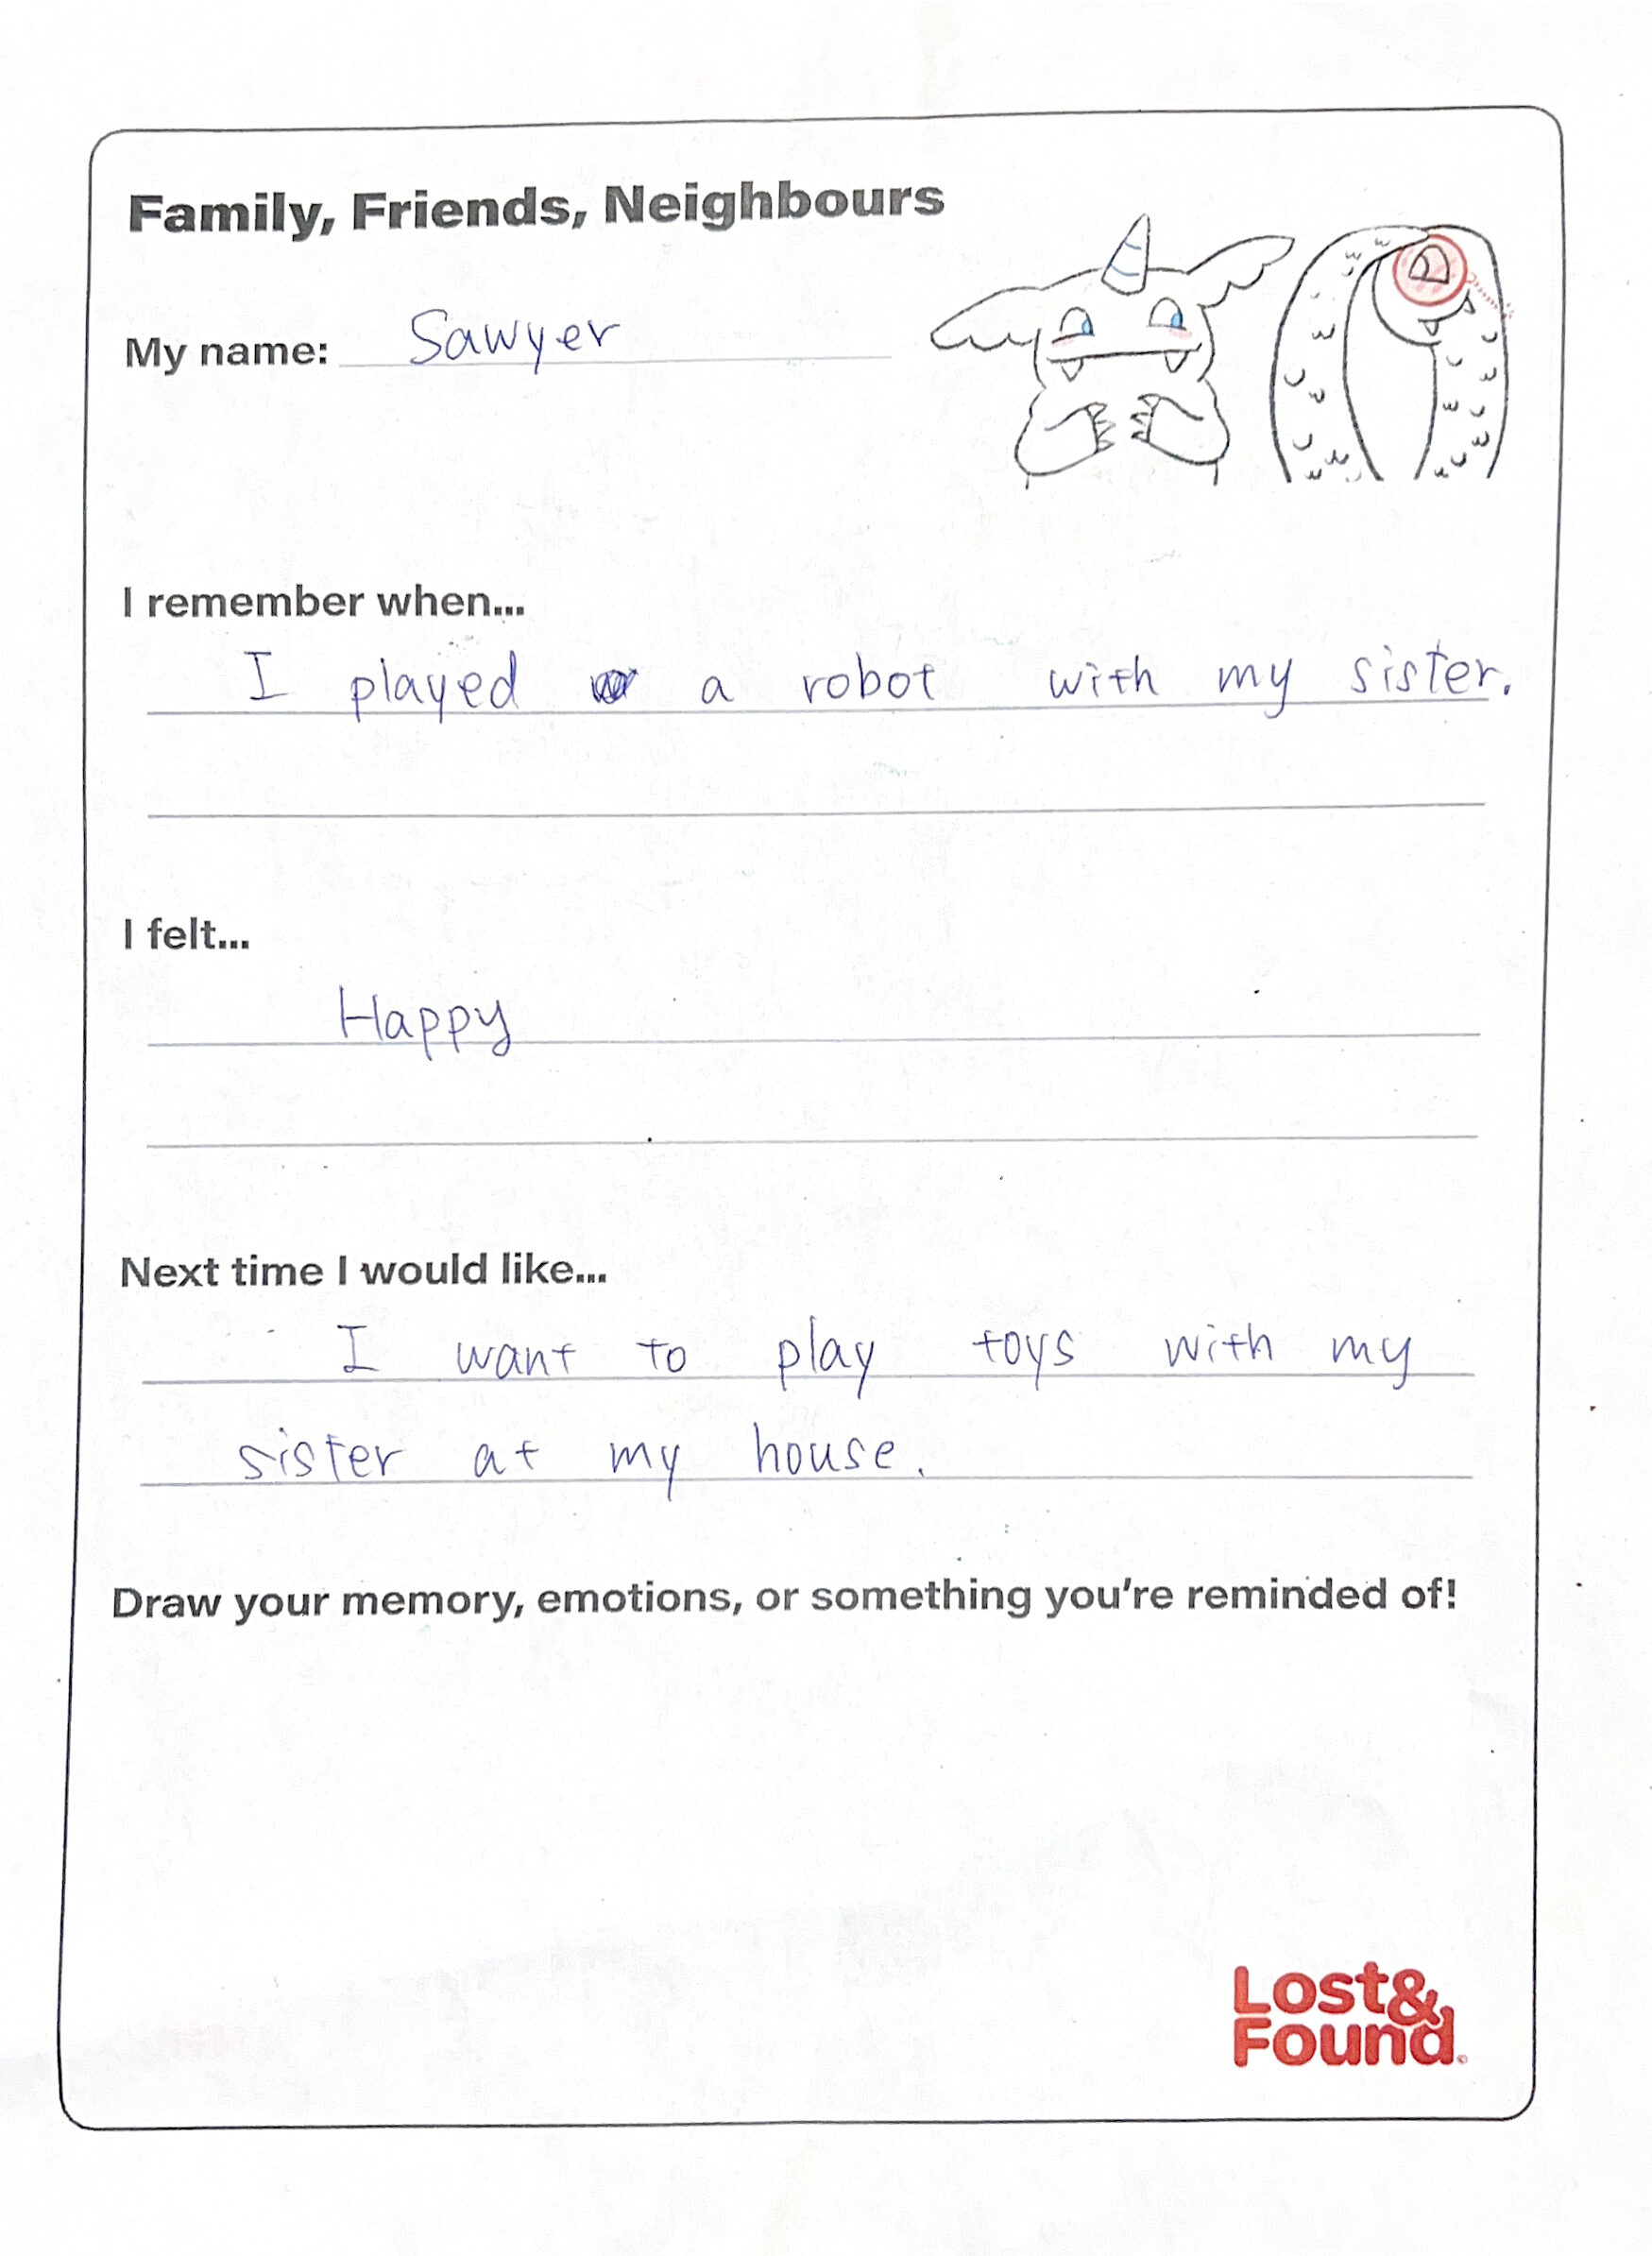 Family, Friends, Neighbours
My name: Sawyer
I remember when...
I played a robot with my sister.
I felt...
Happy
Next time I would like...
I want to play toys with my
sister at my house.
Draw your memory, emotions, or something you're reminded of!
Lost&
Found.